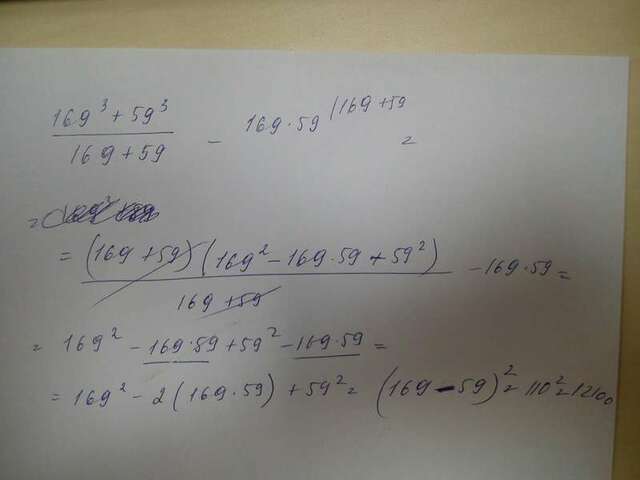 (169³ + 59³)/(169 + 59) - 169·59 /169+59 =
=
= (169 + 59)(169² - 169·59 + 59²)/(169 + 59) - 169·59 =
= 169² - 169·59 + 59² - 169·59 =
= 169² - 2(169·59) + 59² = (169 - 59)² = 110² = 12100